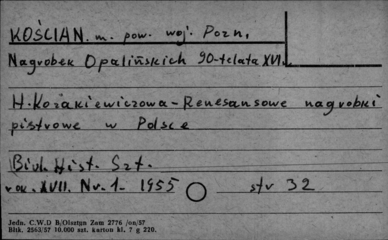 KOŚCIAN. m. pow. woj. Pozn.
Nagrobek Opalińskich 90-te lata XVI w.
H. Kozakiewiczowa - Renesansowe nagrobki
piętrowe w Polsce
Biul. Hist. Szt.
rok. XVII. Nr. 1. 1955 str 32
Jedn. C.W.D B/Olsztyn Zam 2776 /on/57
Bltk. 2563/57 10.000 szt. karton kl. 7 g 220.